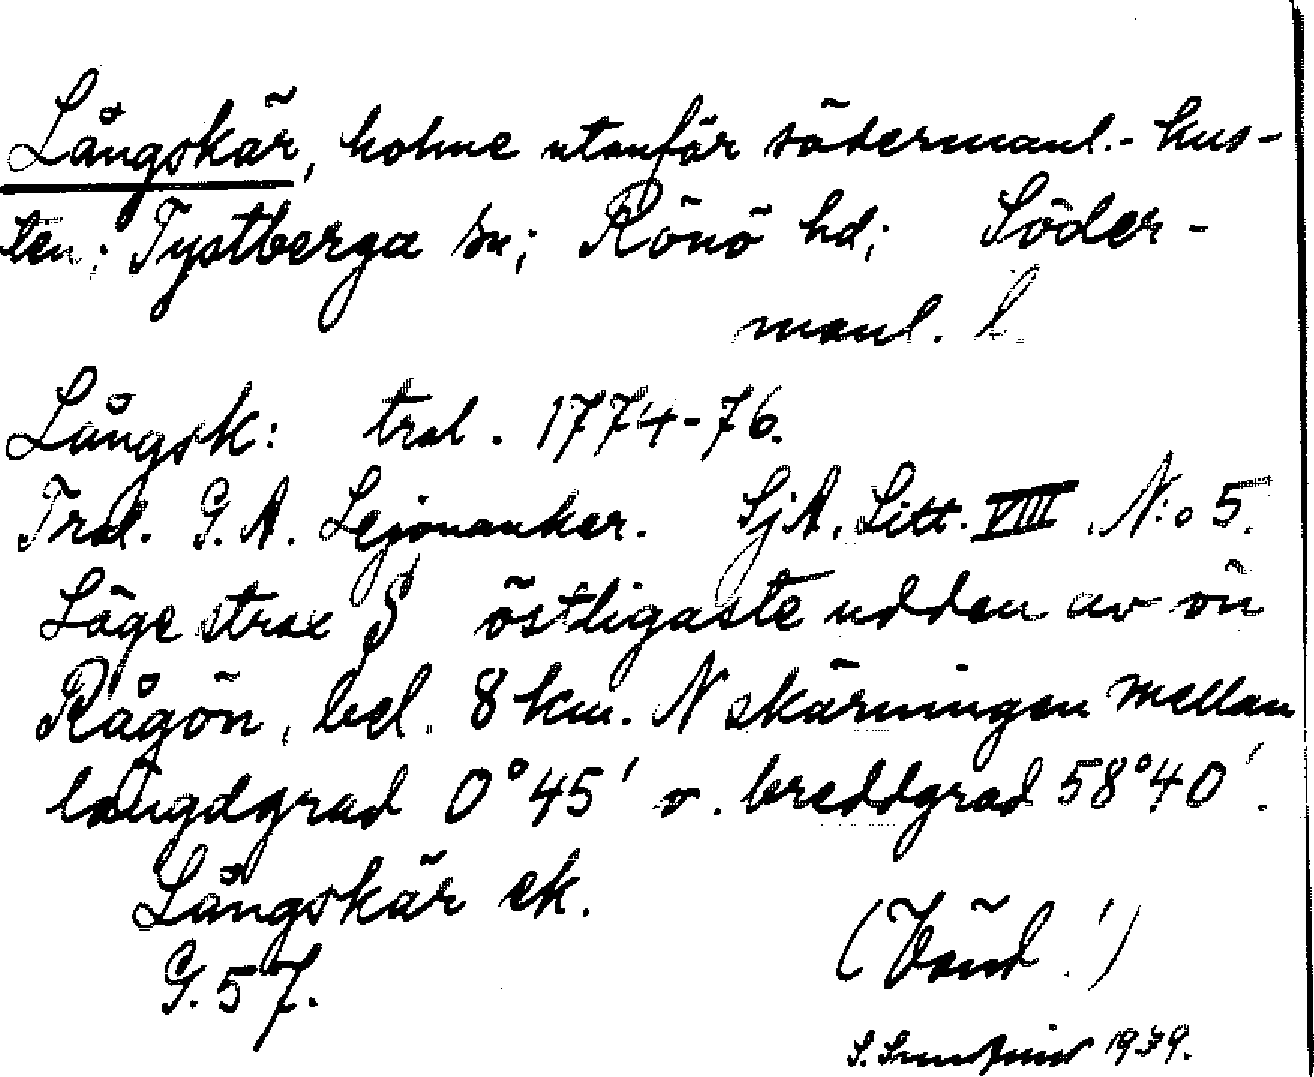 Långskär, holme utanför södermanl.- kus-
ten; Tystberga sn; Rönö hd; Söder-
manl. l.
Långsk: tral. 1774-76.
Tral. G. A. Lejonanker. SjA. Litt. VIII. N:o 5.
Läge strax S östligaste udden av ön
Rågön, bel. 8 km. N skärningen mellan
längdgrad 0°45' o. breddgrad 58°40'.
Långskär ek.
G. 57.
(Vänd!)
S. 1939.